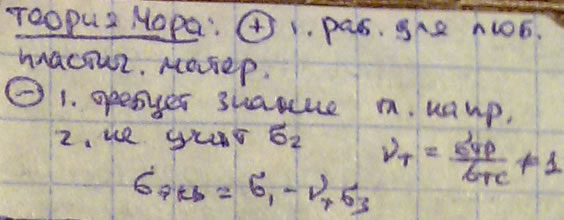 теория Мора: ⊕ 1. раб. для люб.
пластич. матер.
⊖ 1. требует знание п. напр.
2. не учит σ₂
ν_т = σ_тр / σ_тс ≠ 1
σ_экв = σ₁ - ν_т σ₃